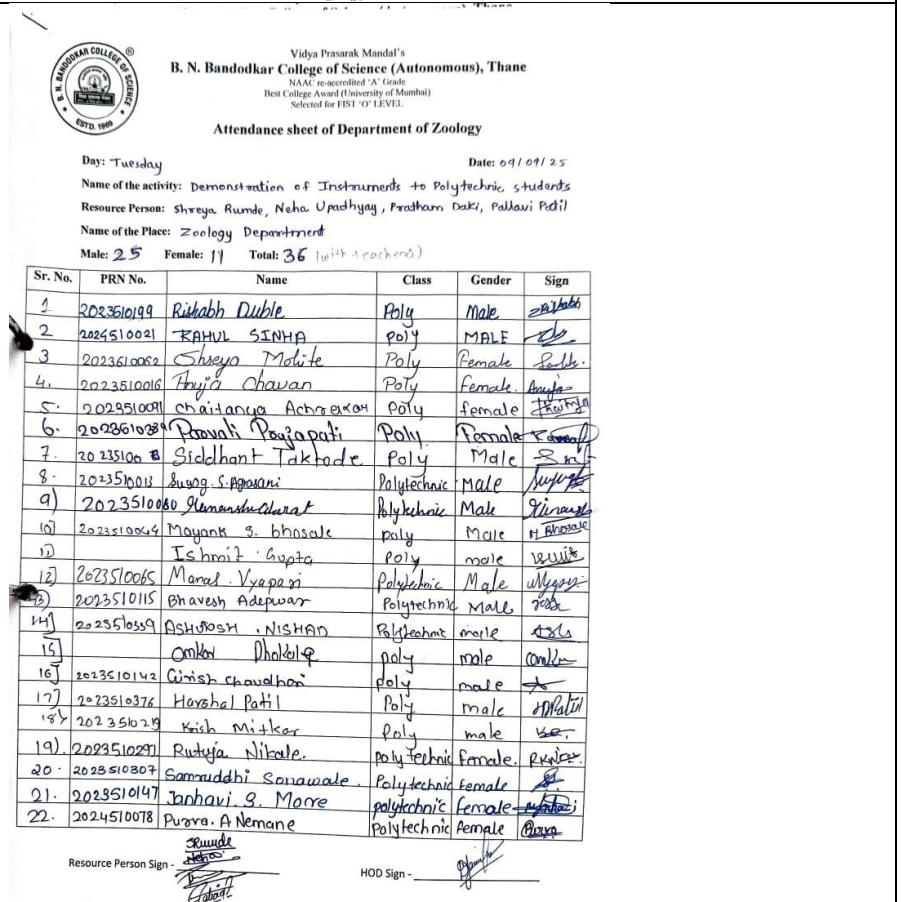 B. N. BANDODKAR COLLEGE OF SCIENCE
ESTD. 1969
Vidya Prasarak Mandal's
B. N. Bandodkar College of Science (Autonomous), Thane
NAAC re-accredited 'A' Grade
Best College Award (University of Mumbai)
Selected for FIST 'O' LEVEL
Attendance sheet of Department of Zoology
Day: Tuesday Date: 09/09/25
Name of the activity: Demonstration of Instruments to Polytechnic students
Resource Person: Shreya Rumde, Neha Upadhyay, Pratham Daki, Pallavi Patil
Name of the Place: Zoology Department
Male: 25 Female: 11 Total: 36 (with teachers)
Sr. No. PRN No. Name Class Gender Sign
1 2023510199 Rishabh Duble Poly Male
2 2024510021 RAHUL SINHA POLY MALE
3 2023610062 Shreya Mohite Poly Female
4. 2023510016 Anuja Chavan Poly female. Anuja
5. 2023510091 Chaitanya Poly female
6. Prajapati Poly Female
7. Siddhant Taktode Poly Male
8. 2023510013 Suyog. S. Agrasani Polytechnic Male
9) 2023510080 Polytechnic Male
10) 2023510064 Mayank S. bhosale poly Male M Bhosale
11) Ishmit Gupta Poly male
12) 2023510065 Manas Vyapari Polytechnic Male
13) 2023510115 Bhavesh Adepwar Polytechnic Male
14) 2023510359 ASHUTOSH . NISHAD Polytechnic male
15) Omkar poly male
16) 2023510142 Girish Chaudhari poly male
17) 2023510376 Harshal Patil Poly male HPatil
18) Krish Mitkar Poly male
19). 2023510297 Rutuja Nikale. polytechnic female.
20. 2023510307 Samruddhi Sonawale. Polytechnic female
21. 2023510147 Janhavi. S. More polytechnic female
22. 2024510078 Purva. A Nemane Polytechnic female
Resource Person Sign - HOD Sign -